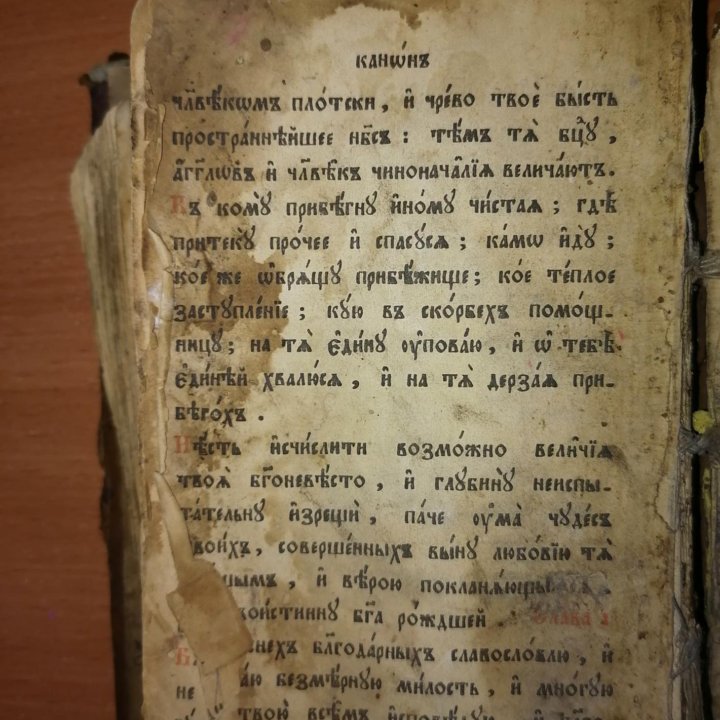 канѡ́нъ
чл҃вѣ́кѡмъ пло́тски, и҆ чре́во твоѐ бы́сть
простра́ннѣйшее нб҃съ : тѣ́мъ тѧ̀ бц҃ꙋ,
а҆́гг҃лѡвъ и҆ чл҃вѣ́къ чинонача̑лїѧ велича́ютъ.
Къ комꙋ̀ прибѣ́гнꙋ и҆но́мꙋ чи́стаѧ; гдѣ̀
притекꙋ̀ про́чее и҆ спасꙋ́сѧ; ка́мѡ и҆дꙋ̀;
ко́е же ѡ҆брѧ́щꙋ прибѣ́жище; ко́е те́плое
застꙋпле́нїе; кꙋ́ю въ ско́рбехъ помо́щ-
ницꙋ; на тѧ̀ є҆ди́нꙋ ᲂу҆пова́ю, и҆ ѡ҆ тебѣ̀
є҆ди́нѣй хвалю́сѧ, и҆ на тѧ̀ дерза́ѧ при-
бѣго́хъ .
Нѣ́сть и҆счи́слити возмо́жно вели̑чїѧ
твоѧ̑ бг҃оневѣ́сто, и҆ глꙋбинꙋ̀ неиспы-
та́тельнꙋ и҆зрещѝ, па́че ᲂу҆ма̀ чꙋде́съ
твои́хъ, соверше́нныхъ вы́нꙋ любо́вїю тѧ̀
и҆ вѣ́рою покланѧ́ющымсѧ
вои́стиннꙋ бг҃а ро́ждшей. Сла́ва :
благода́рныхъ славосло́влю, и҆
не безмѣ́рнꙋю ми́лость, и҆ мно́гꙋю
твою̀ всѣ́мъ и҆сповѣ́дꙋю